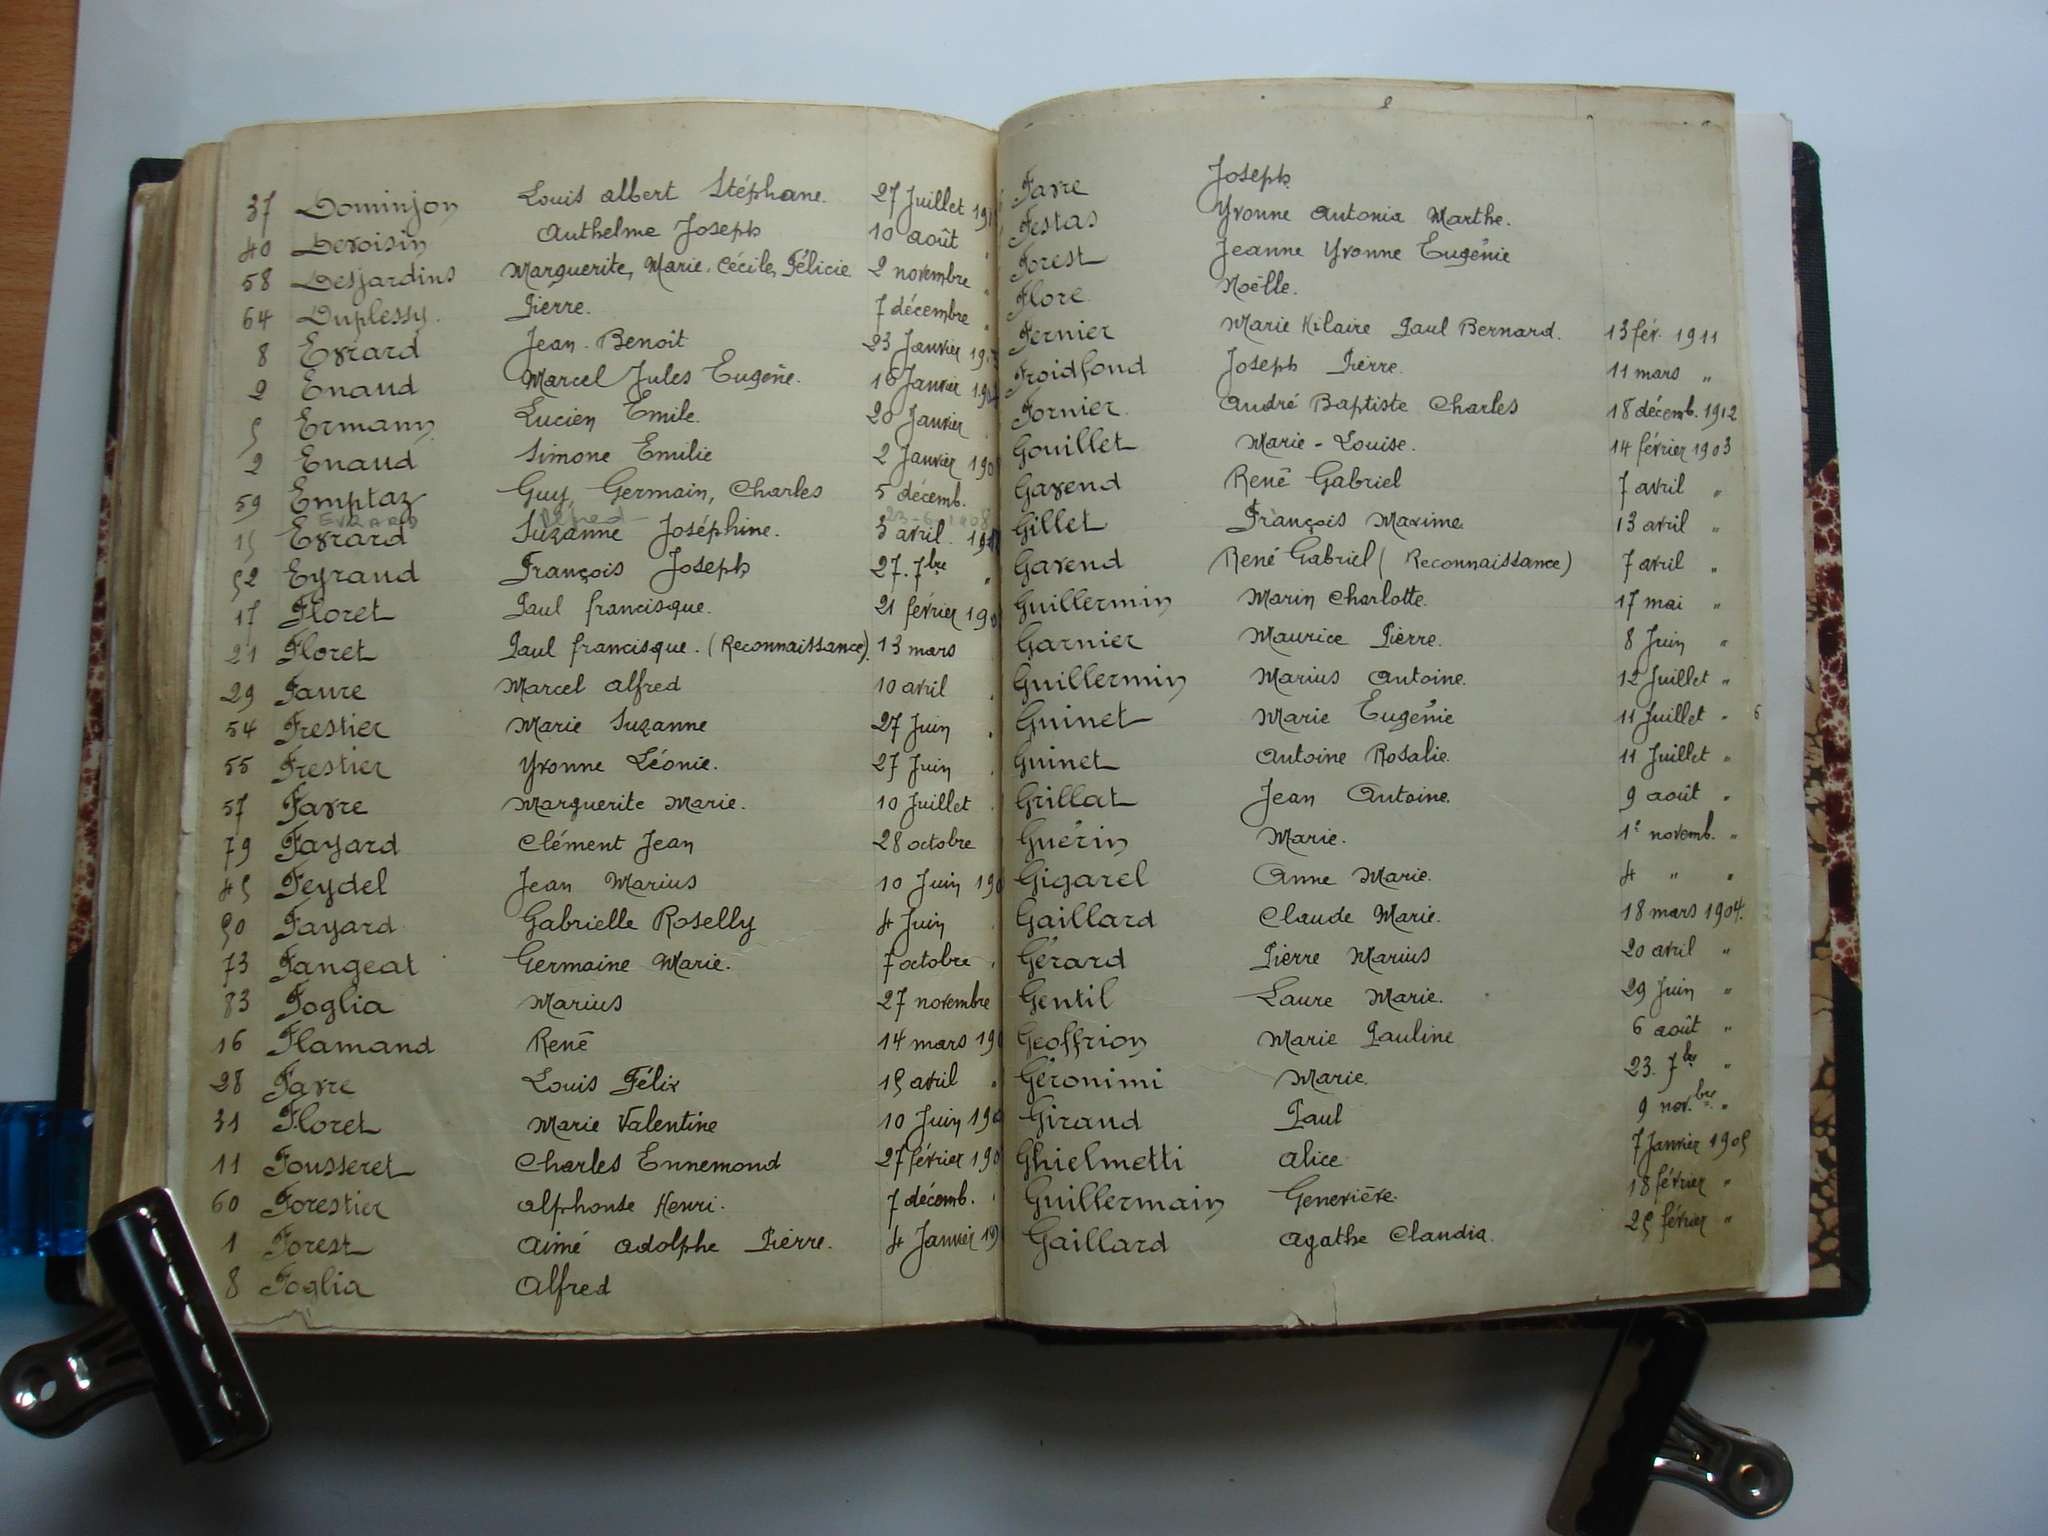 37 Dominjon Louis Albert Stéphane. 27 Juillet
40 Devoisin Authelme Joseph 10 août
58 Desjardins Marguerite, Marie, Cécile, Félicie 2 novembre „
64 Duplessy. Pierre. 7 décembre „
8 Evrard Jean Benoit 23 Janvier
2 Enaud Marcel Jules Eugène. 16 Janvier
5 Ermann Lucien Emile. 20 Janvier
2 Enaud Simone Emilie 2 Janvier
59 Emptaz Guy, Germain, Charles 5 décemb.
EVRARD Alfred 23-6-1908
15 Evrard Suzanne Joséphine. 3 avril
52 Eyraud François Joseph 27. 7bre „
17 Floret Paul francisque. 21 février
21 Floret Paul francisque. (Reconnaissance). 13 mars
29 Faure Marcel Alfred 10 avril
54 Frestier Marie Suzanne 27 Juin
55 Frestier Yvonne Léonie. 27 Juin
57 Favre Marguerite Marie. 10 Juillet
79 Fayard Clément Jean 28 octobre
45 Feydel Jean Marius 10 Juin
50 Fayard Gabrielle Roselly 4 Juin
73 Fangeat Germaine Marie. 7 octobre
83 Foglia Marius 27 novembre
16 Flamand René 14 mars
28 Favre Louis Félix 15 avril „
31 Floret Marie Valentine 10 Juin
11 Fousseret Charles Ennemond 27 février
60 Forestier Alphonse Henri. 7 décemb.
1 Forest Aimé Adolphe Pierre. 4 Janvier
8 Foglia Alfred
Favre Joseph
Festas Yvonne Antonia Marthe.
Forest Jeanne Yvonne Eugénie
Flore Noëlle.
Fernier Marie Hilaire Paul Bernard. 13 fév. 1911
Froidfond Joseph Pierre. 11 mars „
Fornier André Baptiste Charles 18 décemb. 1912
Gouillet Marie-Louise. 14 février 1903
Gavend René Gabriel 7 avril „
Gillet François Maxime. 13 avril „
Gavend René Gabriel (Reconnaissance) 7 avril „
Guillermin Marin Charlotte. 17 mai „
Garnier Maurice Pierre. 8 Juin „
Guillermin Marius Antoine. 12 Juillet „
Guinet Marie Eugénie 11 Juillet „
Guinet Antoine Rosalie. 11 Juillet „
Grillat Jean Antoine. 9 août „
Guérin Marie. 1er novemb. „
Gigarel Anne Marie. 4 „ „
Gaillard Claude Marie. 18 mars 1904.
Gérard Pierre Marius 20 avril „
Gentil Laure Marie. 29 Juin „
Geoffrion Marie Pauline 6 août „
Géronimi Marie. 23. 7bre „
Giraud Paul 9 nov.bre „
Ghielmetti Alice 7 Janvier 1905
Guillermain Geneviève. 18 février „
Gaillard Agathe Claudia. 25 février „